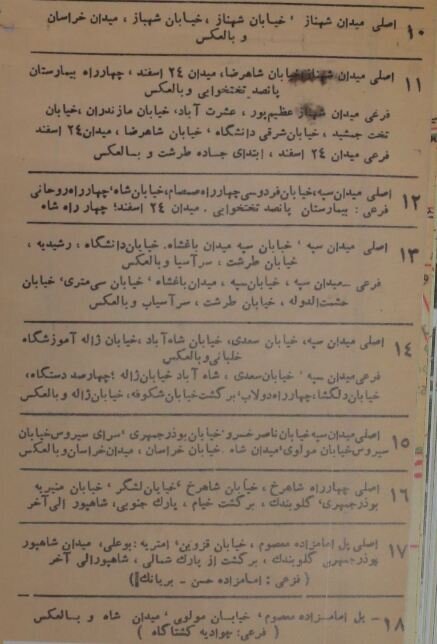 ۱۰ اصلی میدان شهناز ، خیابان شهناز ، خیابان شهباز ، میدان خراسان
و بالعکس
۱۱ اصلی میدان شهناز خیابان شاهرضا، میدان ۲۴ اسفند ، چهارراه بیمارستان
پانصد تختخوابی و بالعکس
فرعی میدان عظیم‌پور ، عشرت آباد، خیابان مازندران ،خیابان
تخت جمشید ، خیابان شرقی دانشگاه ، خیابان شاهرضا ، میدان۲۴ اسفند
فرعی میدان ۲۴ اسفند ، ابتدای جاده طرشت و بالعکس
۱۲ اصلی میدان‌سپه،خیابان فردوسی‌چهارراه‌صمصام،خیابان‌شاه،چهارراه‌روحانی
فرعی : بیمارستان پانصد تختخوابی . میدان ۲۴ اسفند؛ چهار راه شاه
۱۳ اصلی میدان سپه ، خیابان سپه میدان باغشاه. خیابان‌دانشگاه ، رشیدیه ،
خیابان طرشت ، سرآسیا و بالعکس
فرعی -میدان سپه ، خیابان‌سپه ، میدان‌باغشاه ، خیابان سی‌متری، خیابان
حشمت‌الدوله ، خیابان طرشت ، سرآسیاب و بالعکس
۱۴ اصلی میدان سپه، خیابان سعدی، خیابان شاه‌آباد ،خیابان ژاله آموزشگاه
خلبانی‌وبالعکس
فرعی میدان سپه ، خیابان‌سعدی ، شاه آباد خیابان‌ژاله ؛چهارصد دستگاه،
خیابان‌دلگشا،چهارراه‌دولاب،برگشت‌خیابان‌شکوفه، خیابان‌ژاله و بالعکس
۱۵ اصلی میدان‌سپه‌خیابان‌ناصرخسرو،خیابان‌بوذرجمهری ،سرای سیروس‌خیابان
سیروس‌خیابان مولوی،میدان شاه .خیابان خراسان ، میدان‌خراسان‌وبالعکس
۱۶ اصلی چهارراه شاهرخ ، خیابان شاهرخ ،خیابان‌لشگر ، خیابان منیریه
بوذرجمهری، گلوبندک ، برگشت خیام ، پارک جنوبی، شاهپور الی‌آخر
۱۷ اصلی پل امامزاده معصوم ، خیابان قزوین، امیریه : بوعلی، میدان شاهپور
بوذرجمهری گلوبندک ، برگشت از پارک شمالی ، شاهپورالی آخر
( فرعی : امامزاده حسن - بریانک)
۱۸ - پل امامزاده معصوم ، خیابان مولوی ، میدان شاه و بالعکس
( فرعی: جوادیه کشتارگاه )